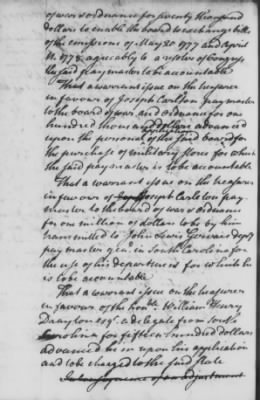 of war & ordnance for seventy thousand
dollars to enable the board to exchange bills
of the emissions of May 20 1777 and April
11. 1778 agreeably to a resolve of Congress
the said pay master to be accountable
That a warrant issue on the treasurer
in favour of Joseph Carlton pay master
to the board of war and ordnance for one
hundred thousand dollars advanced
upon the of the said board for
the purchase of military stores for which
the said pay master is to be accountable
That a warrant issue on the treasurer
in favour of Joseph Carleton pay
master to the board of war & ordnance
for one million of dollars to be by him
transmitted to John Lewis Gervais dep'y
pay master gen'l in South Carolina for
the use of his department for which he
is to be accountable
That a warrant issue on the treasurer
in favour of the hon'ble William Henry
Drayton esq'r a delegate from South
Carolina for fifteen hundred dollars
advanced him upon his application
and to be charged to the said State
In consequence of an adjustment